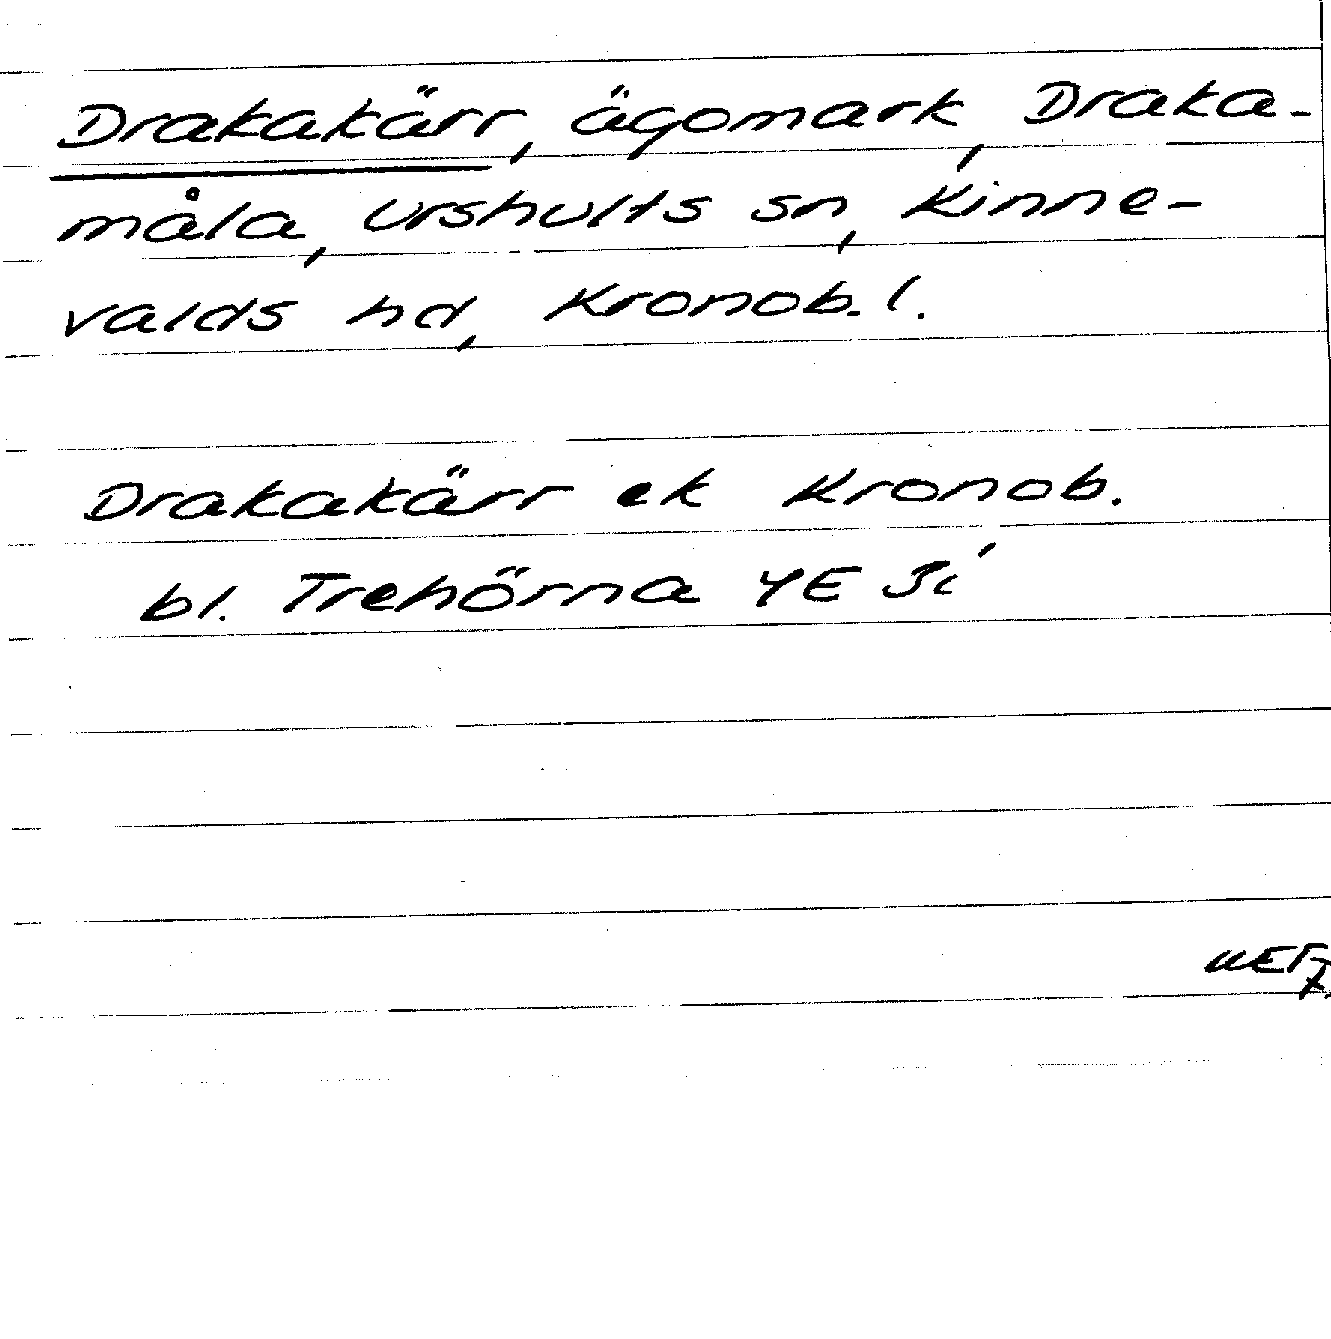 Drakakärr, ägomark, Draka-
måla, Urshults sn, Kinne-
valds hd, Kronob. l.
Drakakärr ek Kronob.
bl. Trehörna 4E 3i